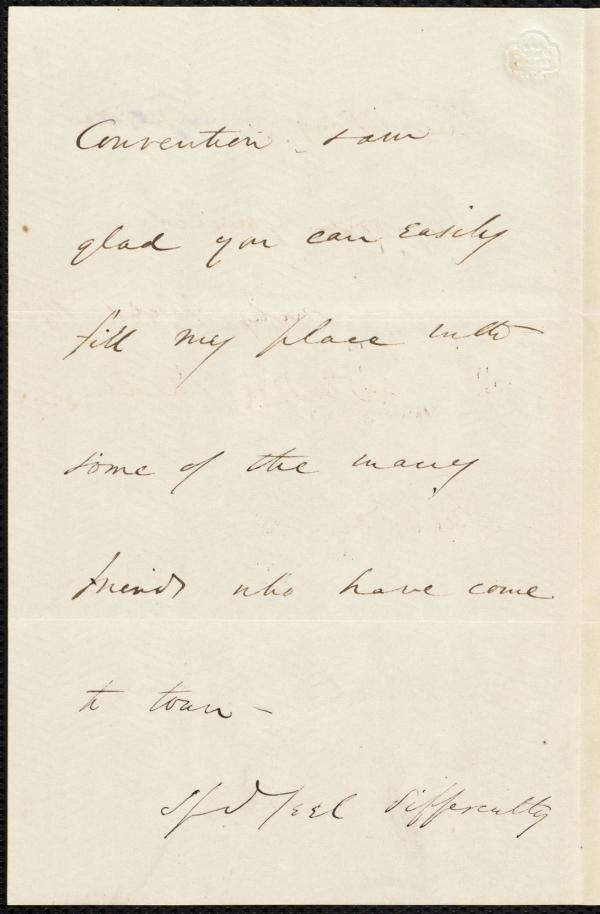 Convention. I am
glad you can easily
fill my place with
some of the many
friends who have come
to town –
If I feel differently